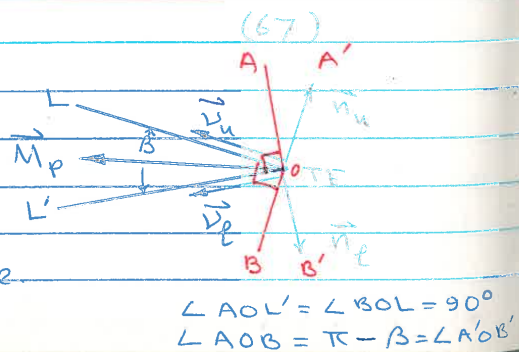 (67)
A A′
L ν⃗u n⃗u
β
M⃗p O TE
L′ ν⃗ℓ
B B′ n⃗ℓ
e
∠AOL′ = ∠BOL = 90°
∠AOB = π − β = ∠A′OB′